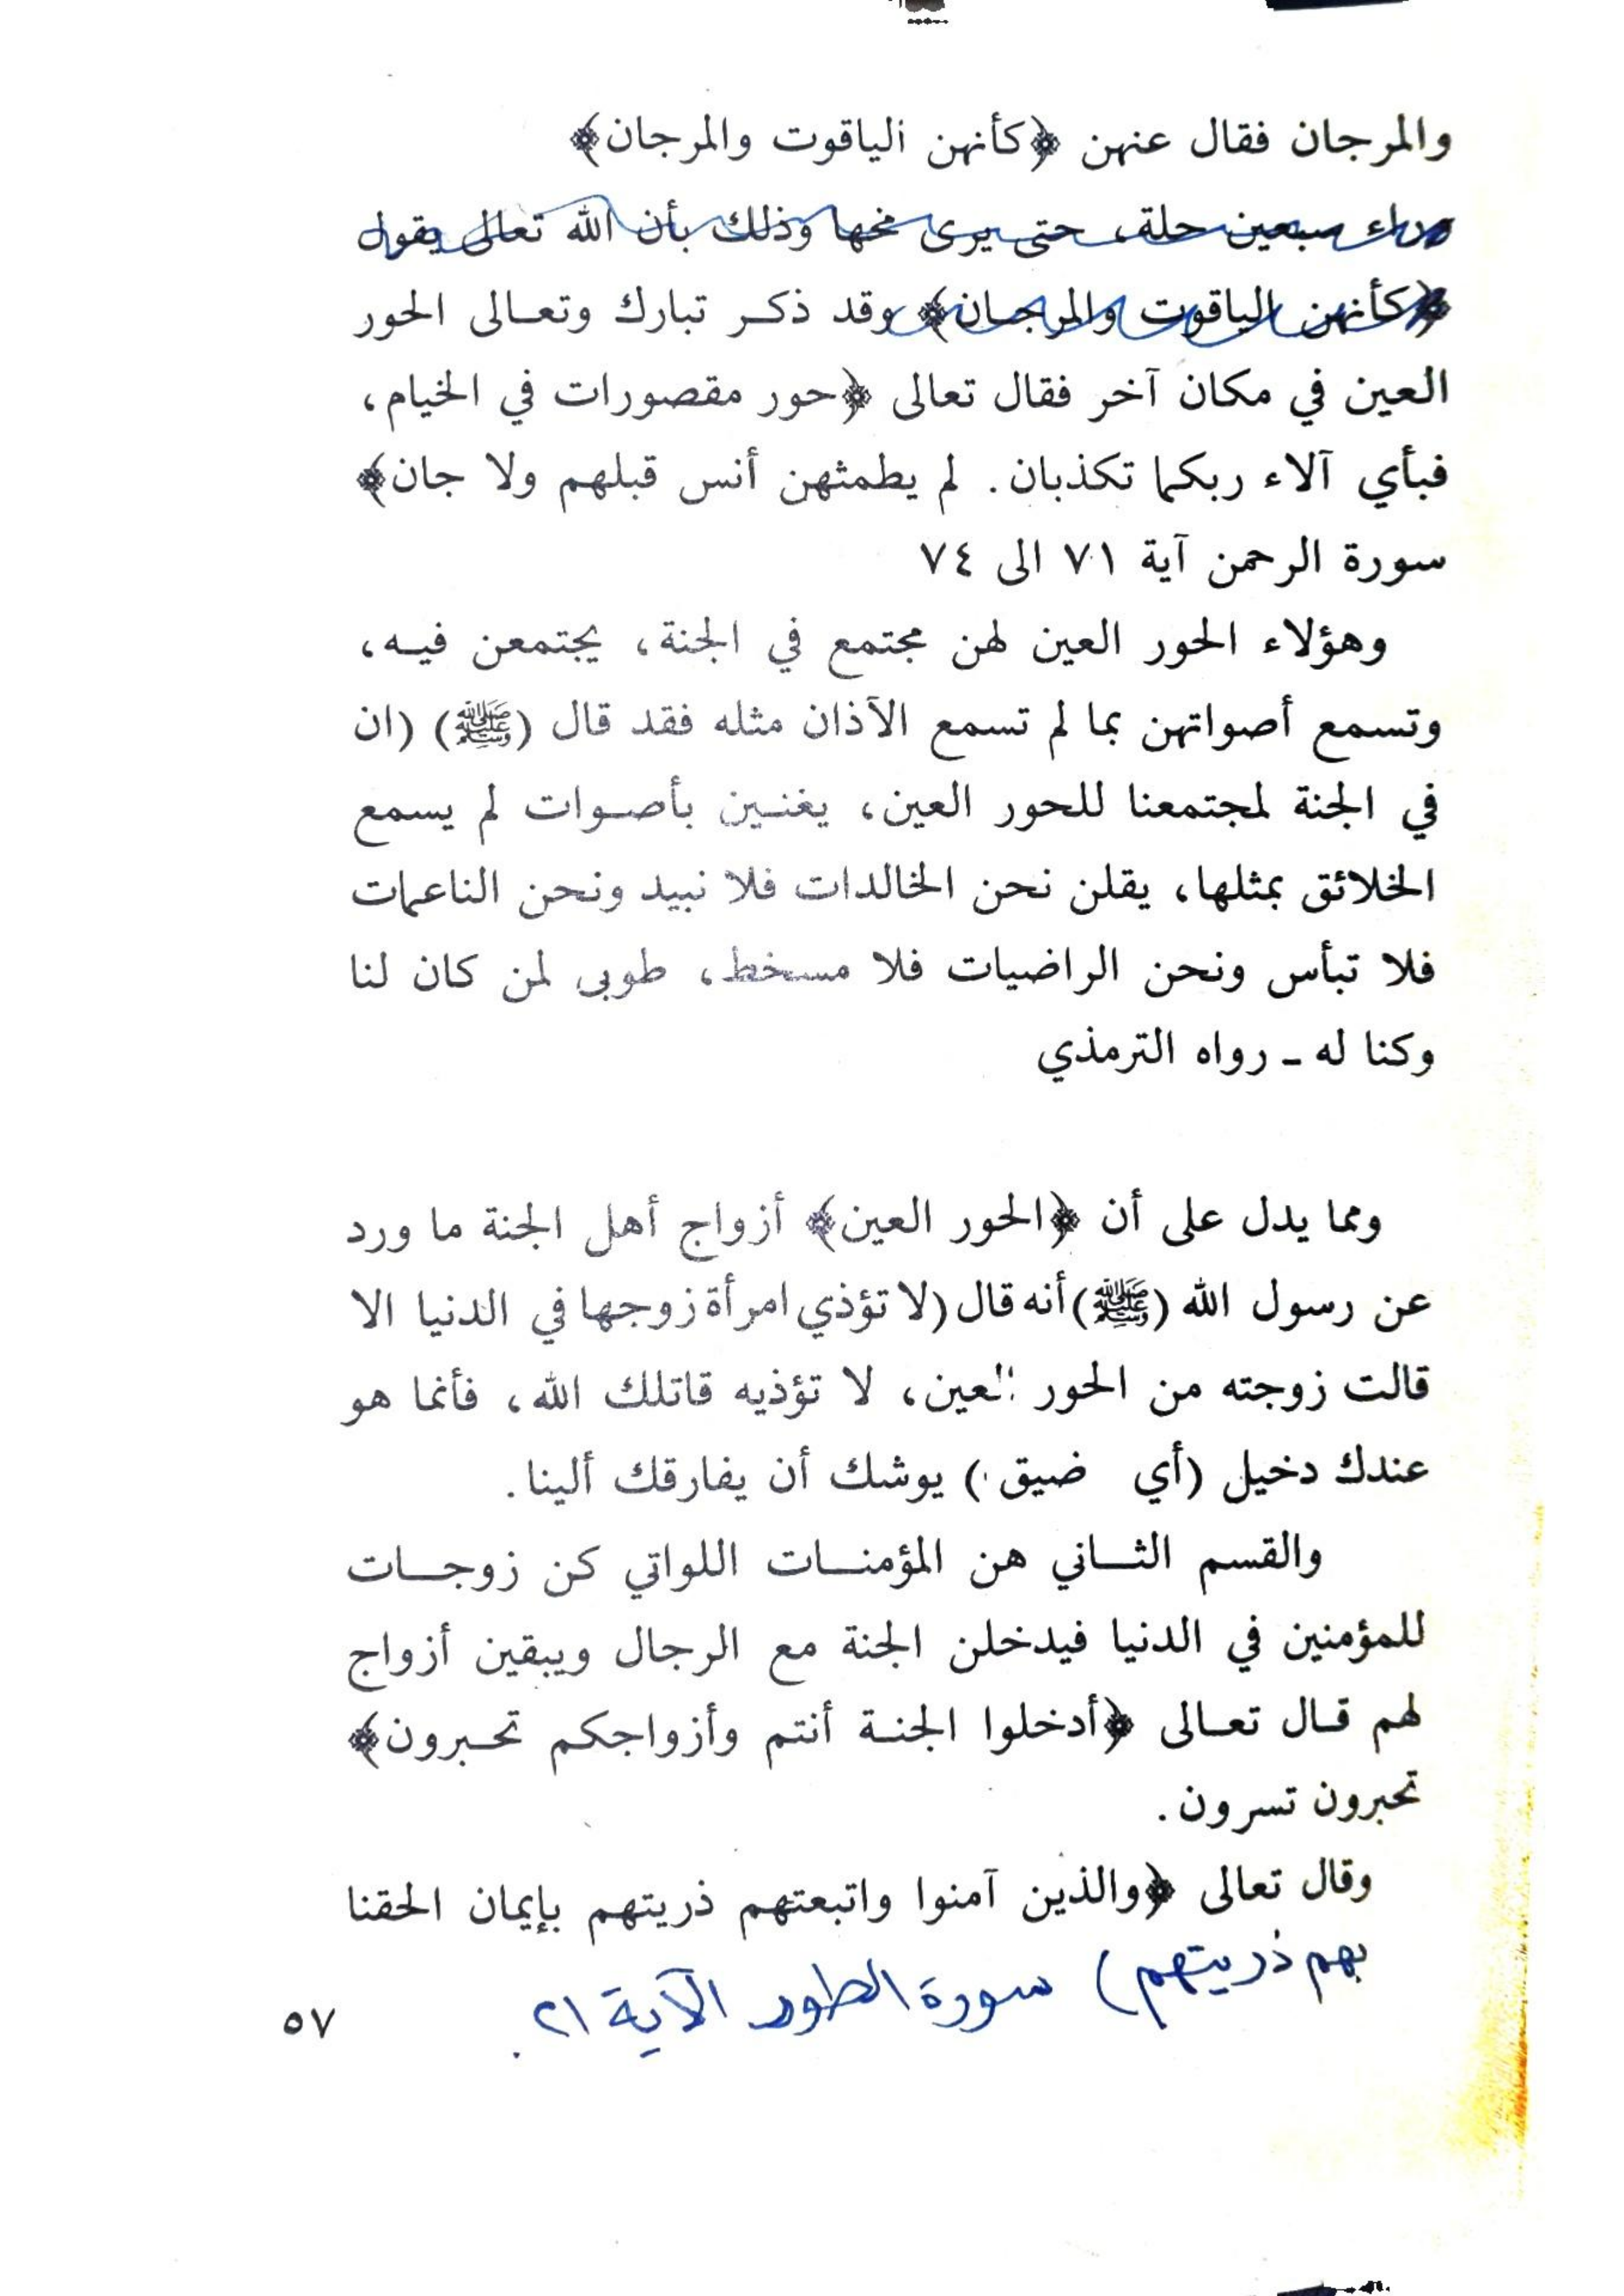 والمرجان فقال عنهن ﴿كأنهن الياقوت والمرجان﴾
وراء سبعين حلة، حتى يرى مخها وذلك بأن الله تعالى يقول
﴿كأنهن الياقوت والمرجـان﴾ وقد ذكـر تبارك وتعـالى الحور
العين في مكان آخر فقال تعالى ﴿حور مقصورات في الخيام،
فبأي آلاء ربكما تكذبان. لم يطمثهن أنس قبلهم ولا جان﴾
سورة الرحمن آية ٧١ الى ٧٤
وهؤلاء الحور العين لهن مجتمع في الجنة، يجتمعن فيـه،
وتسمع أصواتهن بما لم تسمع الآذان مثله فقد قال (ﷺ) (ان
في الجنة لمجتمعنا للحور العين، يغنـين بأصـوات لم يسمع
الخلائق بمثلها، يقلن نحن الخالدات فلا نبيد ونحن الناعمات
فلا تبأس ونحن الراضيات فلا مسخط، طوبى لمن كان لنا
وكنا له ـ رواه الترمذي
ومما يدل على أن ﴿الحور العين﴾ أزواج أهل الجنة ما ورد
عن رسول الله (ﷺ) أنه قال (لا تؤذي امرأة زوجها في الدنيا الا
قالت زوجته من الحور العين، لا تؤذيه قاتلك الله، فأنما هو
عندك دخيل (أي ضيق) يوشك أن يفارقك ألينا.
والقسم الثـاني هن المؤمنـات اللواتي كن زوجـات
للمؤمنين في الدنيا فيدخلن الجنة مع الرجال ويبقين أزواج
لهم قـال تعـالى ﴿أدخلوا الجنـة أنتم وأزواجكم تحـبرون﴾
تحبرون تسرون.
وقال تعالى ﴿والذين آمنوا واتبعتهم ذريتهم بإيمان الحقنا
بهم ذريتهم) سورة الطور الآية ٢١.
٥٧